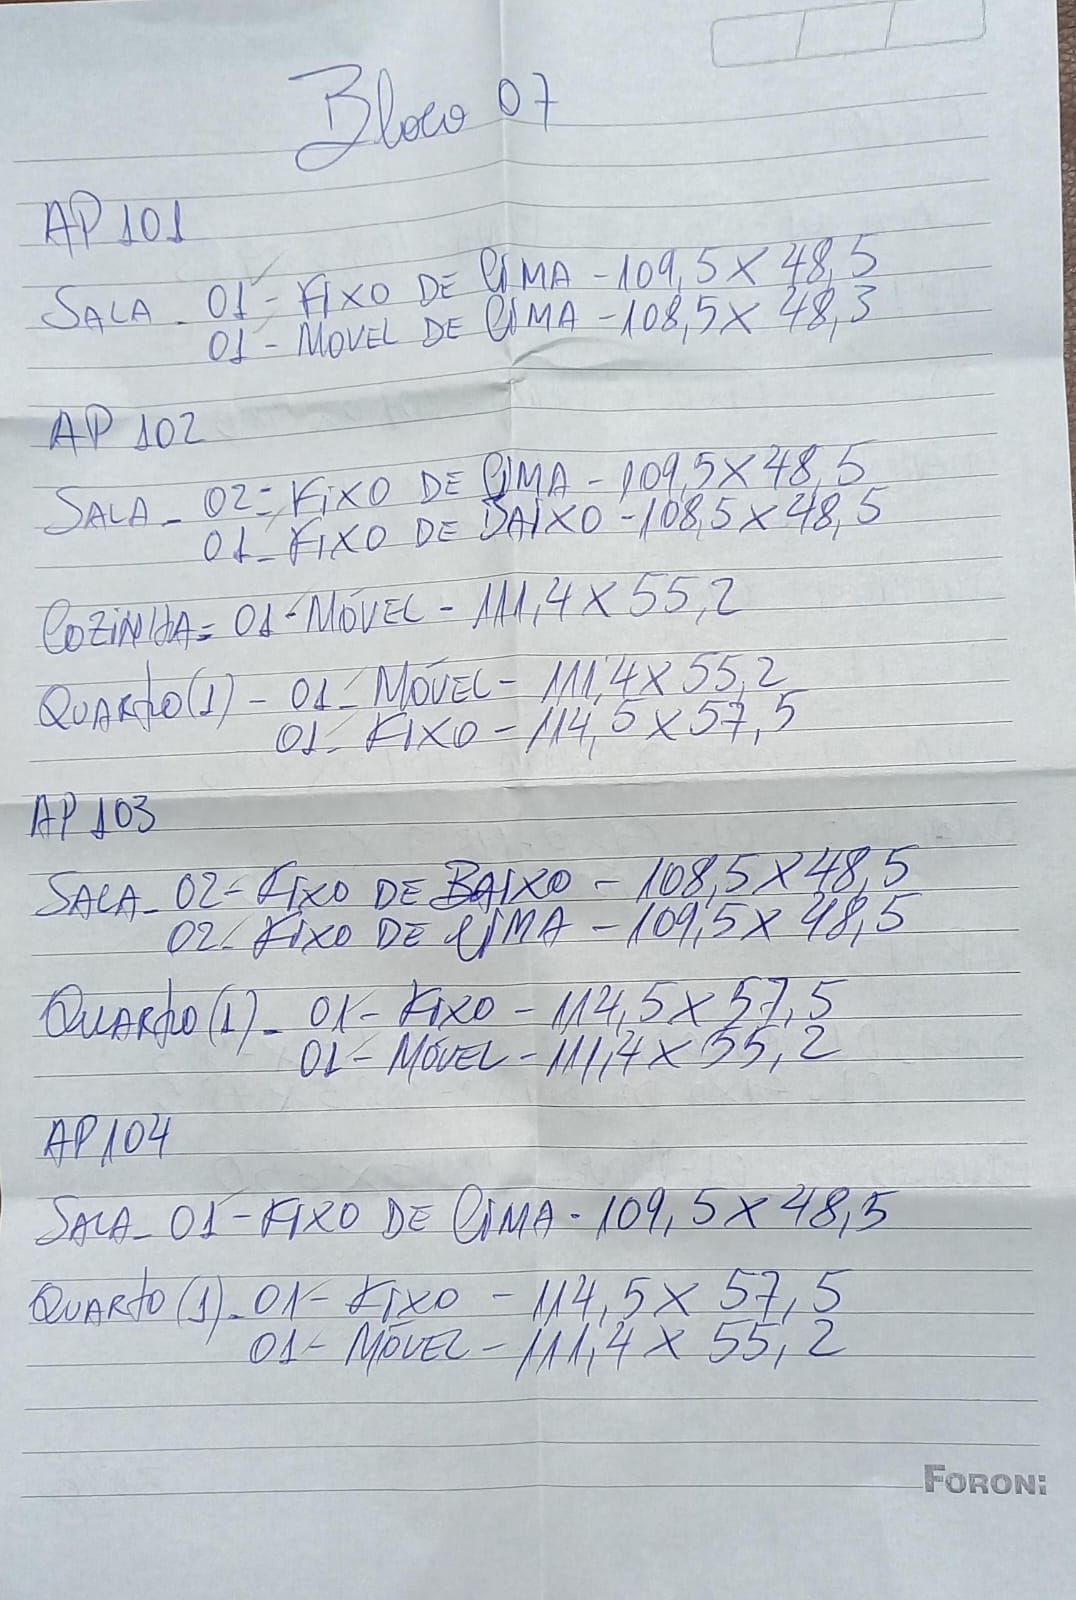 Bloco 07
AP 101
SALA - 01 - FIXO DE CIMA - 109,5 X 48,5
01 - MOVEL DE CIMA - 108,5 X 48,3
AP 102
SALA - 02 = FIXO DE CIMA - 109,5 X 48,5
01 - FIXO DE BAIXO - 108,5 X 48,5
COZINHA = 01 - MÓVEL - 111,4 X 55,2
QUARTO (1) - 01 - MÓVEL - 111,4 X 55,2
01 - FIXO - 114,5 X 57,5
AP 103
SALA - 02 - FIXO DE BAIXO - 108,5 X 48,5
02 - FIXO DE CIMA - 109,5 X 48,5
QUARTO (1) - 01 - FIXO - 114,5 X 57,5
01 - MÓVEL - 111,4 X 55,2
AP 104
SALA - 01 - FIXO DE CIMA - 109,5 X 48,5
QUARTO (1) - 01 - FIXO - 114,5 X 57,5
01 - MÓVEL - 111,4 X 55,2
FORONI